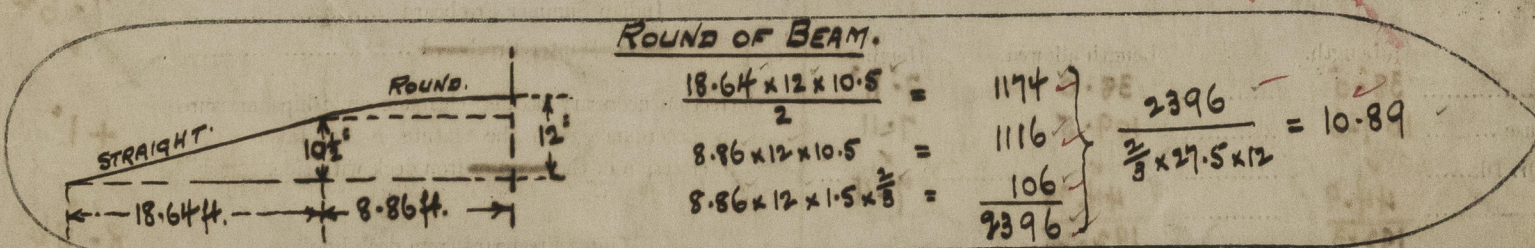 ROUND OF BEAM.
ROUND.
STRAIGHT.
10½"
12"
18.64 ft.
8.86 ft.
18.64 x 12 x 10.5 / 2 = 1174
8.86 x 12 x 10.5 = 1116
8.86 x 12 x 1.5 x 2/3 = 106
2396
2396 / 2/3 x 27.5 x 12 = 10.89